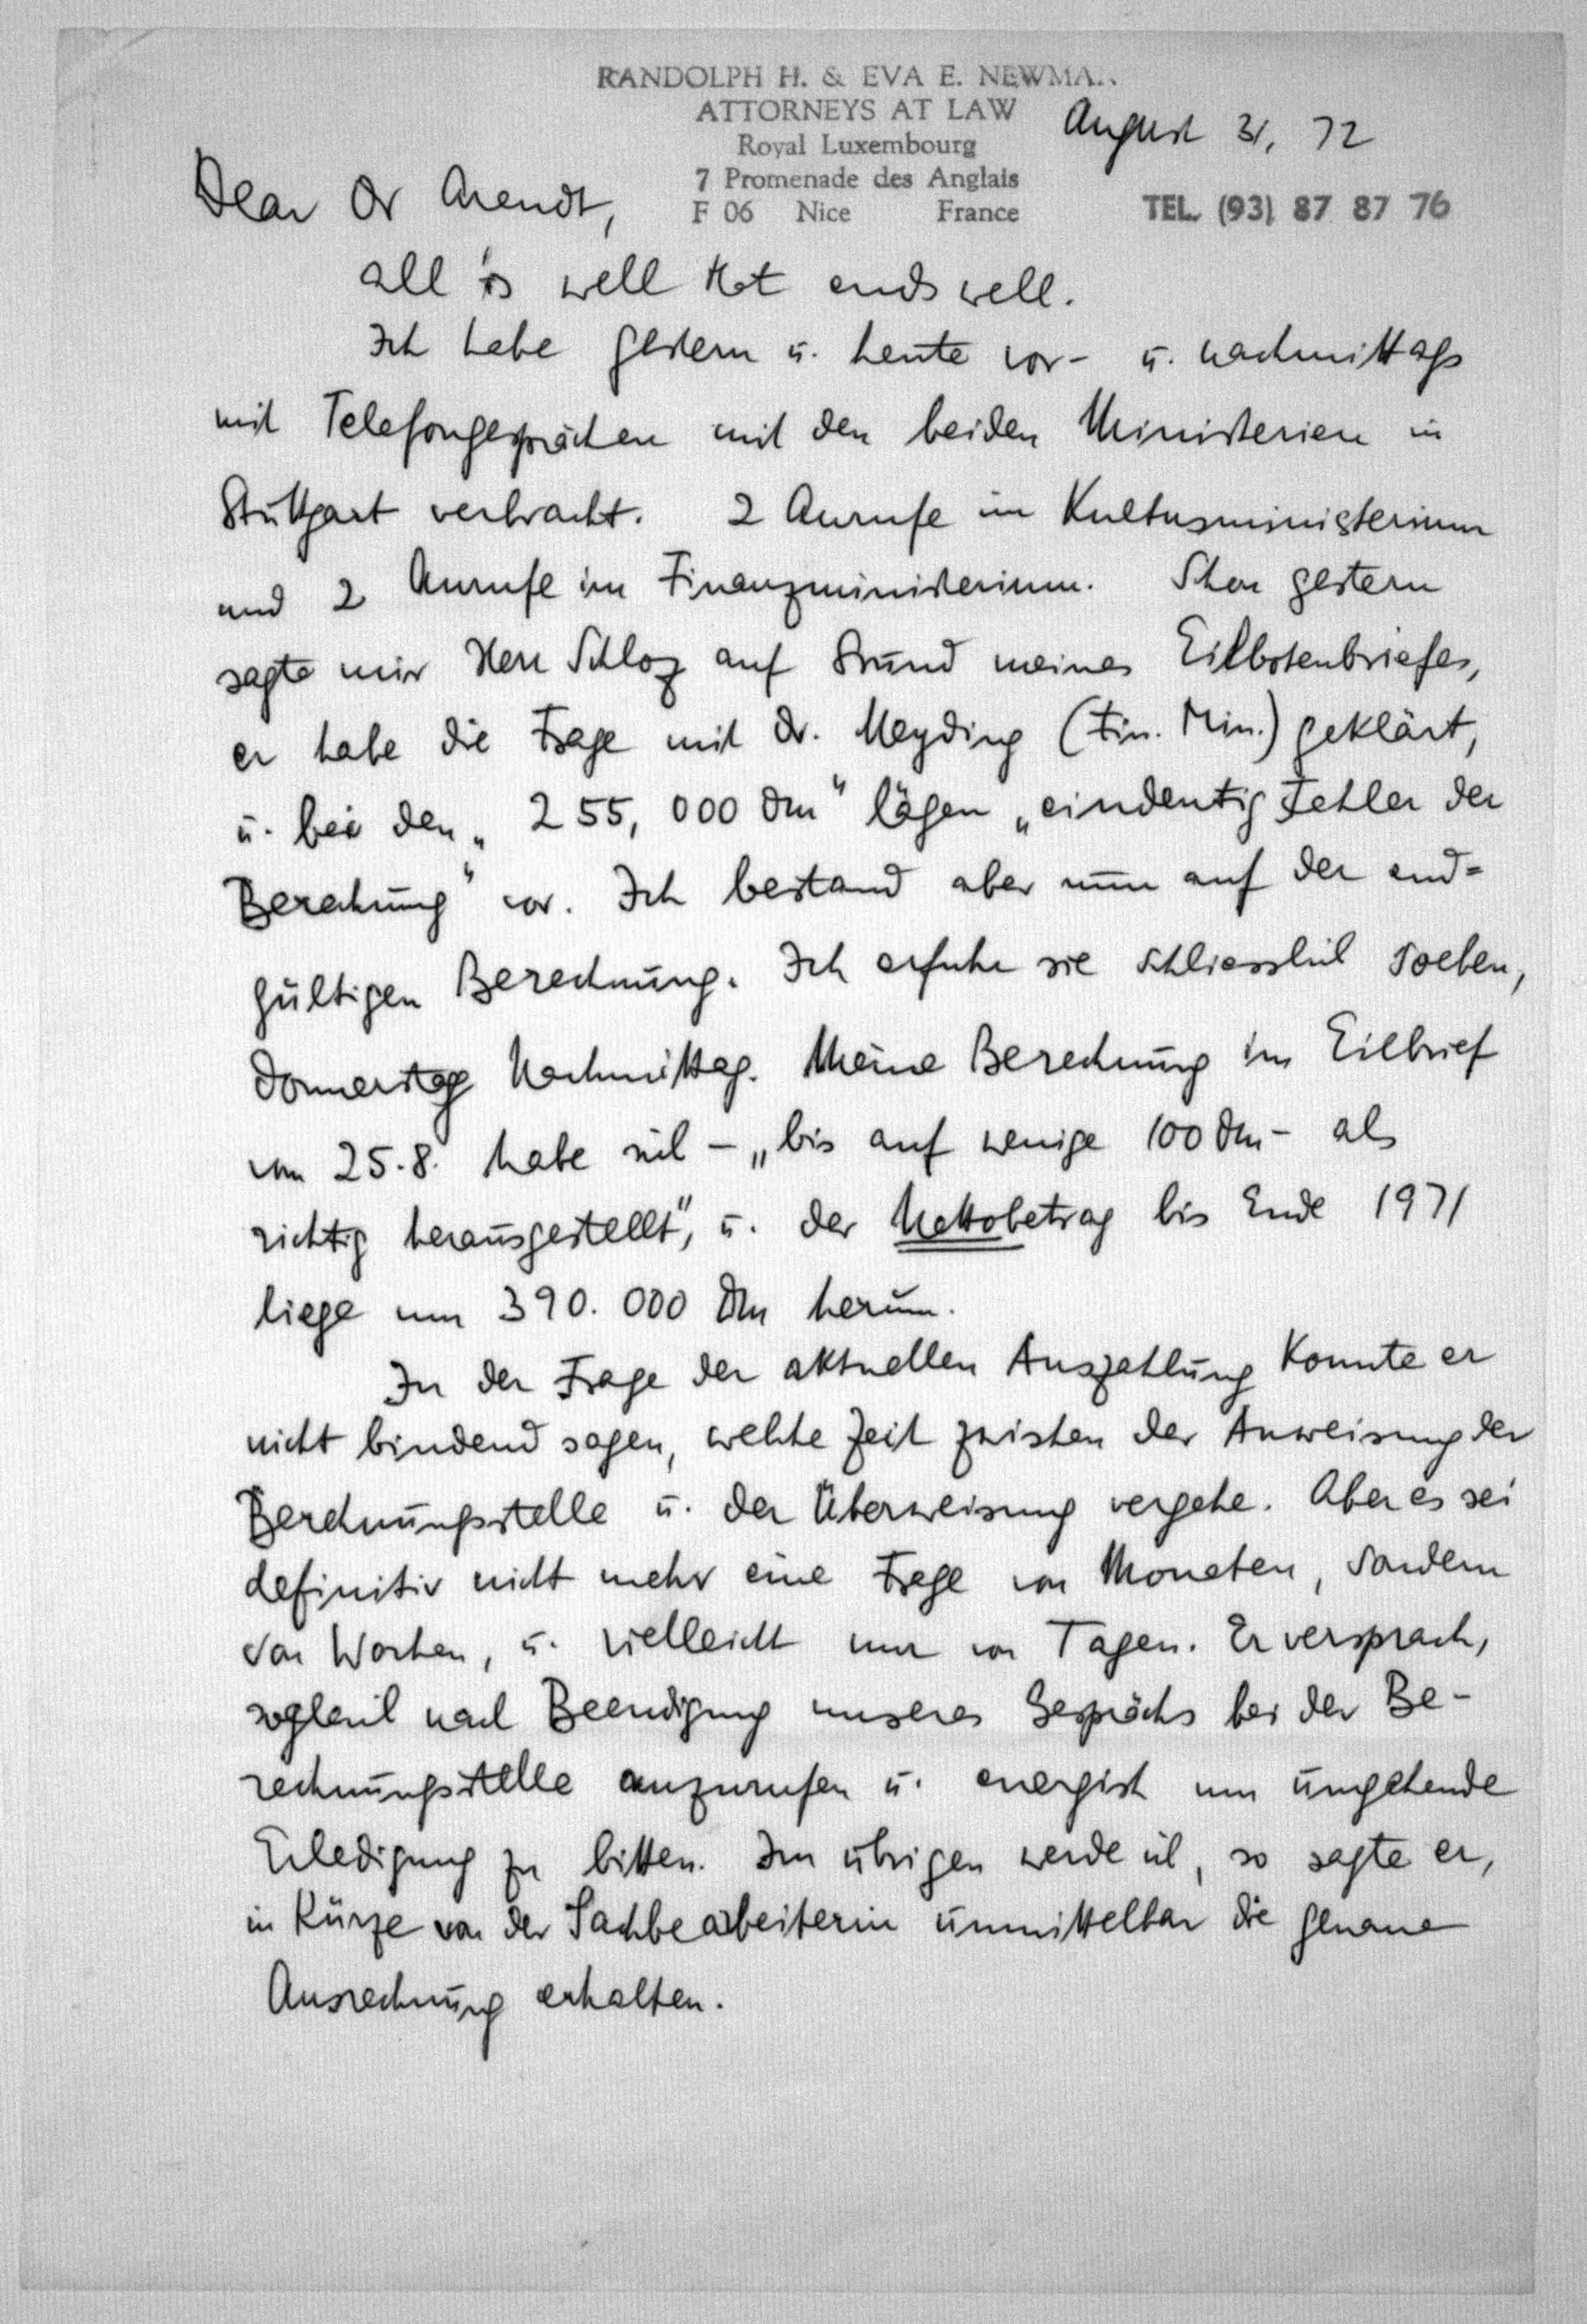 RANDOLPH H. & EVA E. NEWMA..
ATTORNEYS AT LAW
August 31, 72
Royal Luxembourg
7 Promenade des Anglais
Dear Dr Arendt,
F 06 Nice France
TEL. (93) 87 87 76
all is well that ends well.
Ich habe gestern u. heute vor- u. nachmittags
mit Telefongesprächen mit den beiden Ministerien in
Stuttgart verbracht. 2 Anrufe im Kultusministerium
und 2 Anrufe im Finanzministerium. Schon gestern
sagte mir Herr Schloz auf Grund meines Eilbotenbriefes,
er habe die Frage mit Dr. Meyding (Fin. Min.) geklärt,
u. bei den „255,000 DM" lägen „eindeutig Fehler der
Berechnung" vor. Ich bestand aber nun auf der end=
gültigen Berechnung. Ich erfuhr sie schliesslich soeben,
Donnerstag Nachmittag. Meine Berechnung im Eilbrief
vom 25.8. habe sich – „bis auf wenige 100 DM – als
richtig herausgestellt", u. der Nettobetrag bis Ende 1971
liege um 390.000 DM herum.
In der Frage der aktuellen Auszahlung konnte er
nicht bindend sagen, welche Zeit zwischen der Anweisung der
Berechnungsstelle u. der Überweisung vergehe. Aber es sei
definitiv nicht mehr eine Frage von Monaten, sondern
von Wochen, u. vielleicht nur von Tagen. Er versprach,
sogleich nach Beendigung unseres Gesprächs bei der Be-
rechnungsstelle anzurufen u. energisch um umgehende
Erledigung zu bitten. Im übrigen werde ich, so sagte er,
in Kürze von der Sachbearbeiterin unmittelbar die genaue
Ausrechnung erhalten.